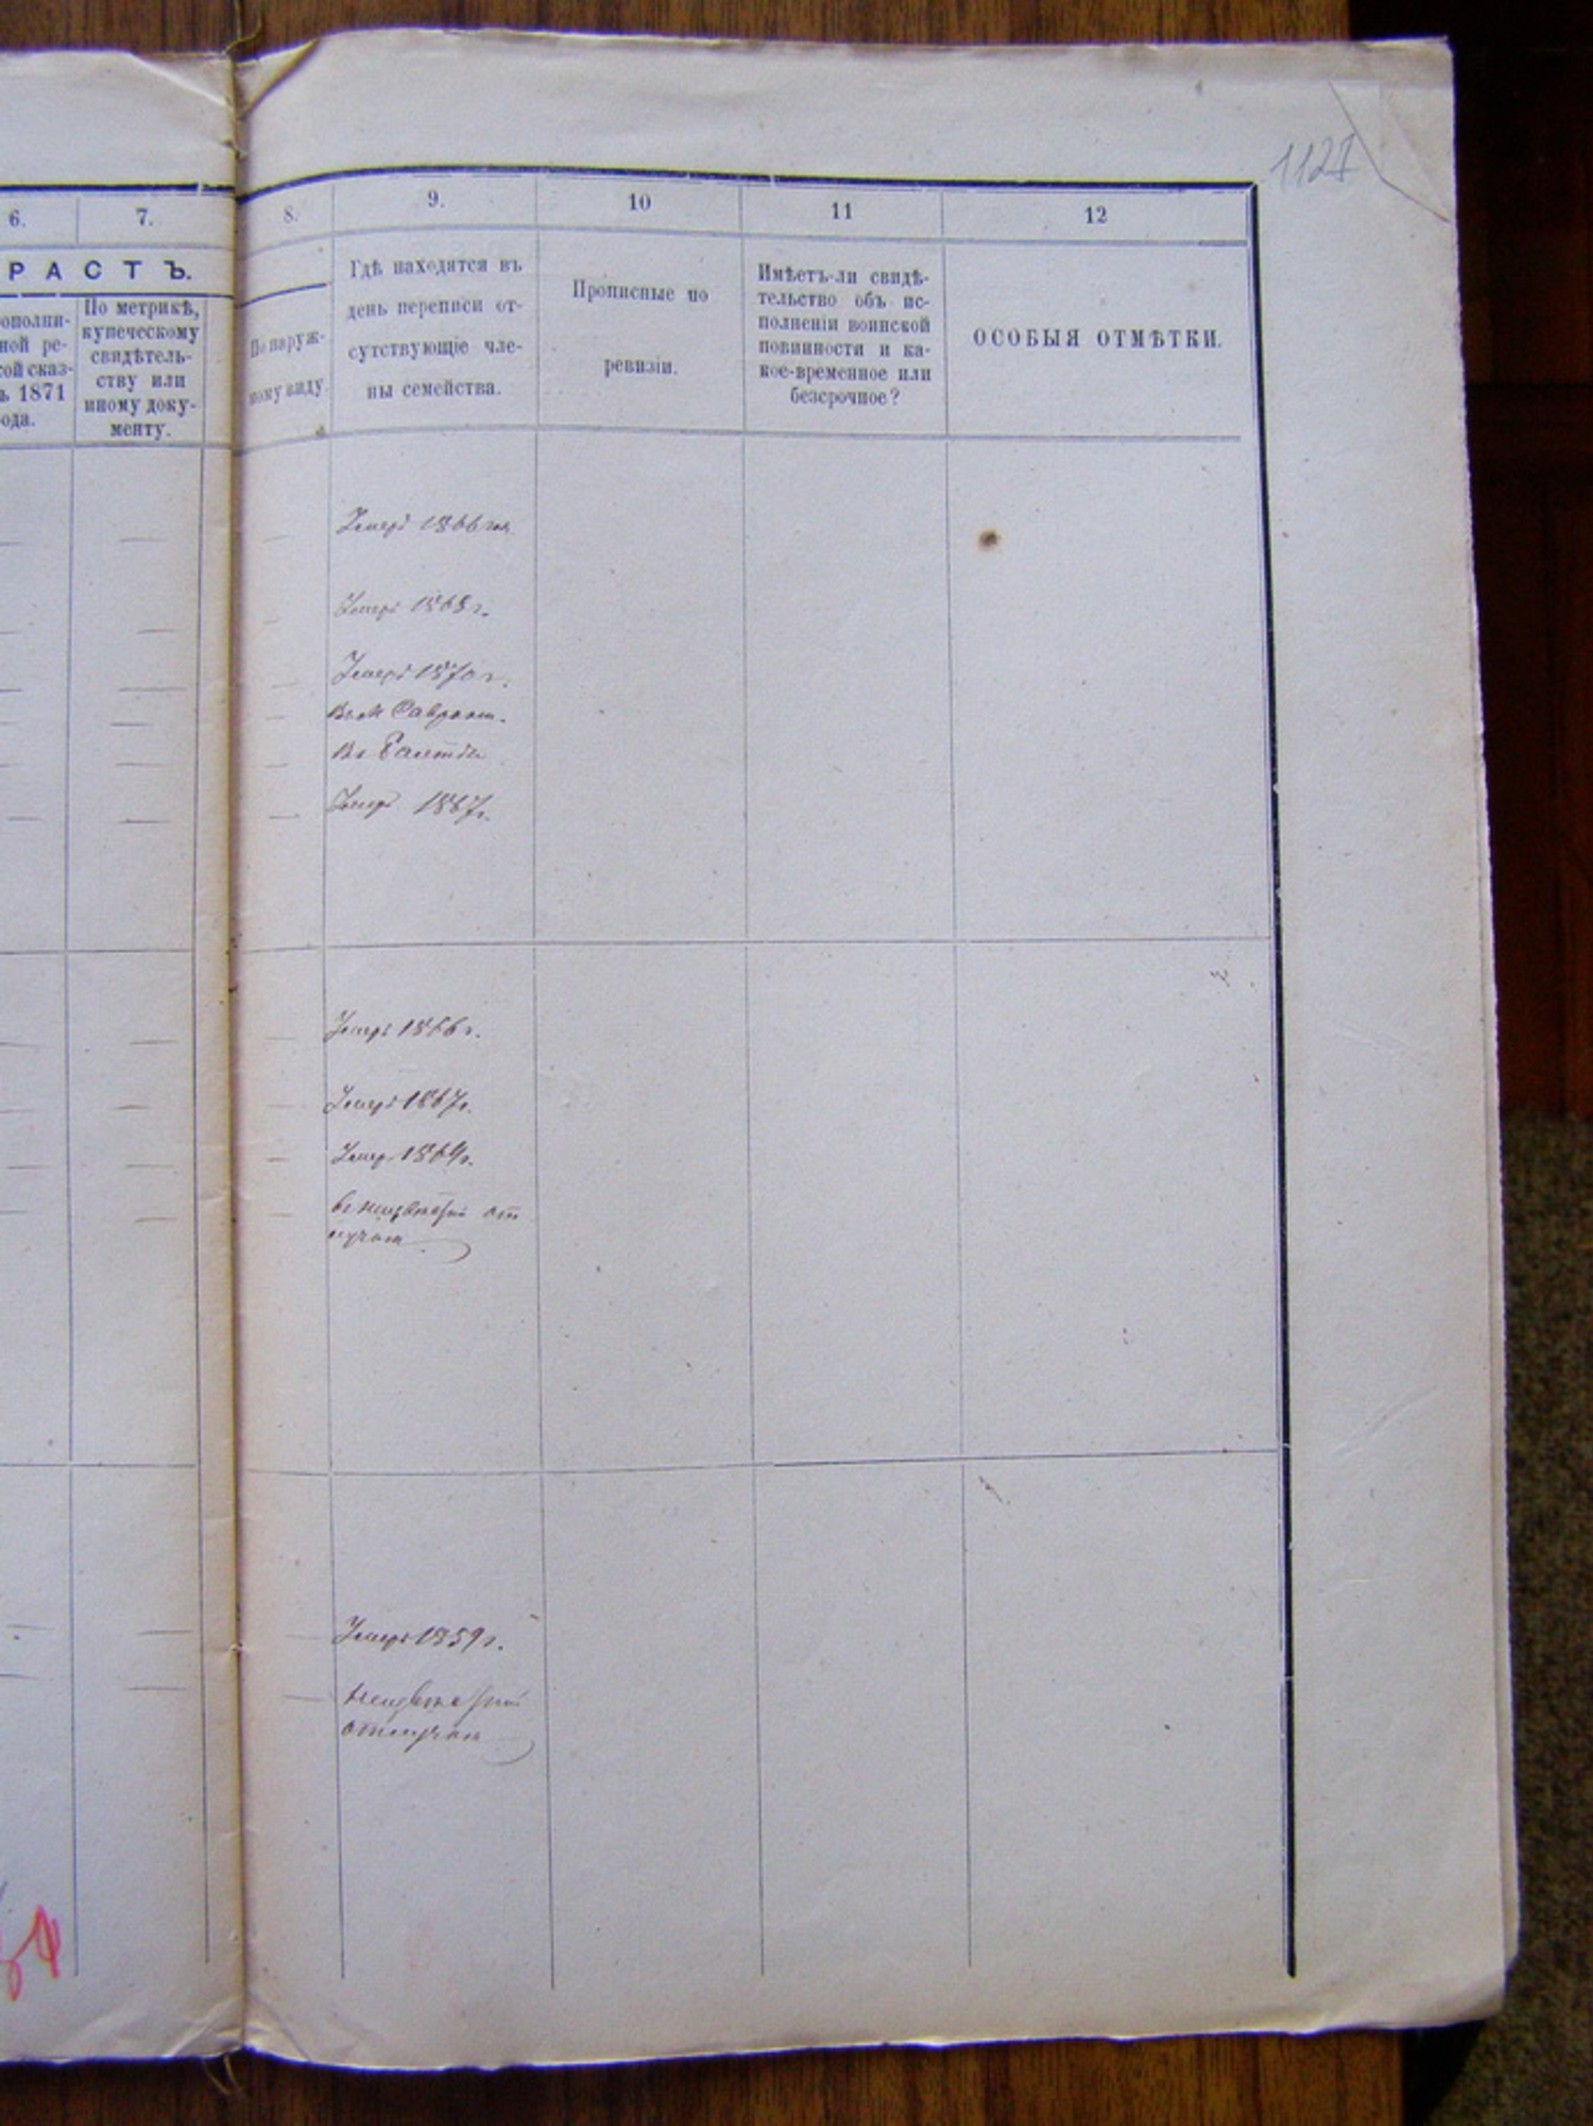 1121
6. 7. 8. 9. 10 11 12
РАСТЪ.
ополни-
ной ре-
сказ-
1871
ода.
По метрикѣ,
купеческому
свидѣтель-
ству или
иному доку-
менту.
По наруж-
ному виду.
Гдѣ находятся въ
день переписи от-
сутствующіе чле-
ны семейства.
Прописные по
ревизіи.
Имѣетъ-ли свидѣ-
тельство объ ис-
полненіи воинской
повинности и ка-
кое-временное или
безсрочное?
ОСОБЫЯ ОТМѢТКИ.
Умеръ 1866 год
Умеръ 1868 г.
Умеръ 1870 г.
Въ м Саврани.
Въ Балтѣ
Умеръ 1867 г.
Умеръ 1866 г.
Умеръ 1867 г.
Умеръ 1869 г.
въ неизвѣстной от
лучкѣ
Умеръ 1859 г.
неизвѣстной
отлучкѣ